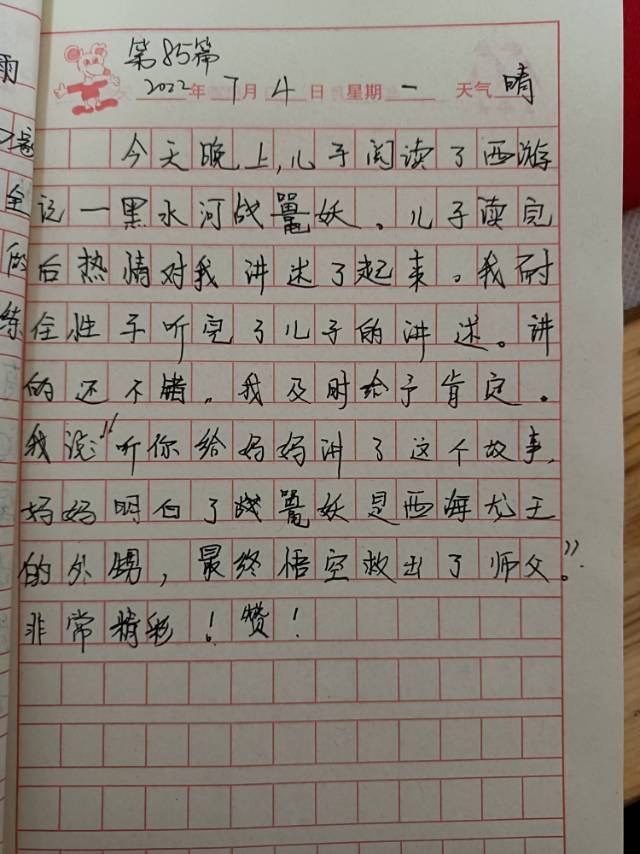 第85篇
2022年7月4日 星期一 天气晴
今天晚上,儿子阅读了西游
记一黑水河战鼍妖。儿子读完
后热情对我讲述了起来。我耐
住性子听完了儿子的讲述。讲
的还不错。我及时给予肯定。
我说:"听你给妈妈讲了这个故事,
妈妈明白了战鼍妖是西海龙王
的外甥,最终悟空救出了师父。"
非常精彩!赞!
雨
全
的
练